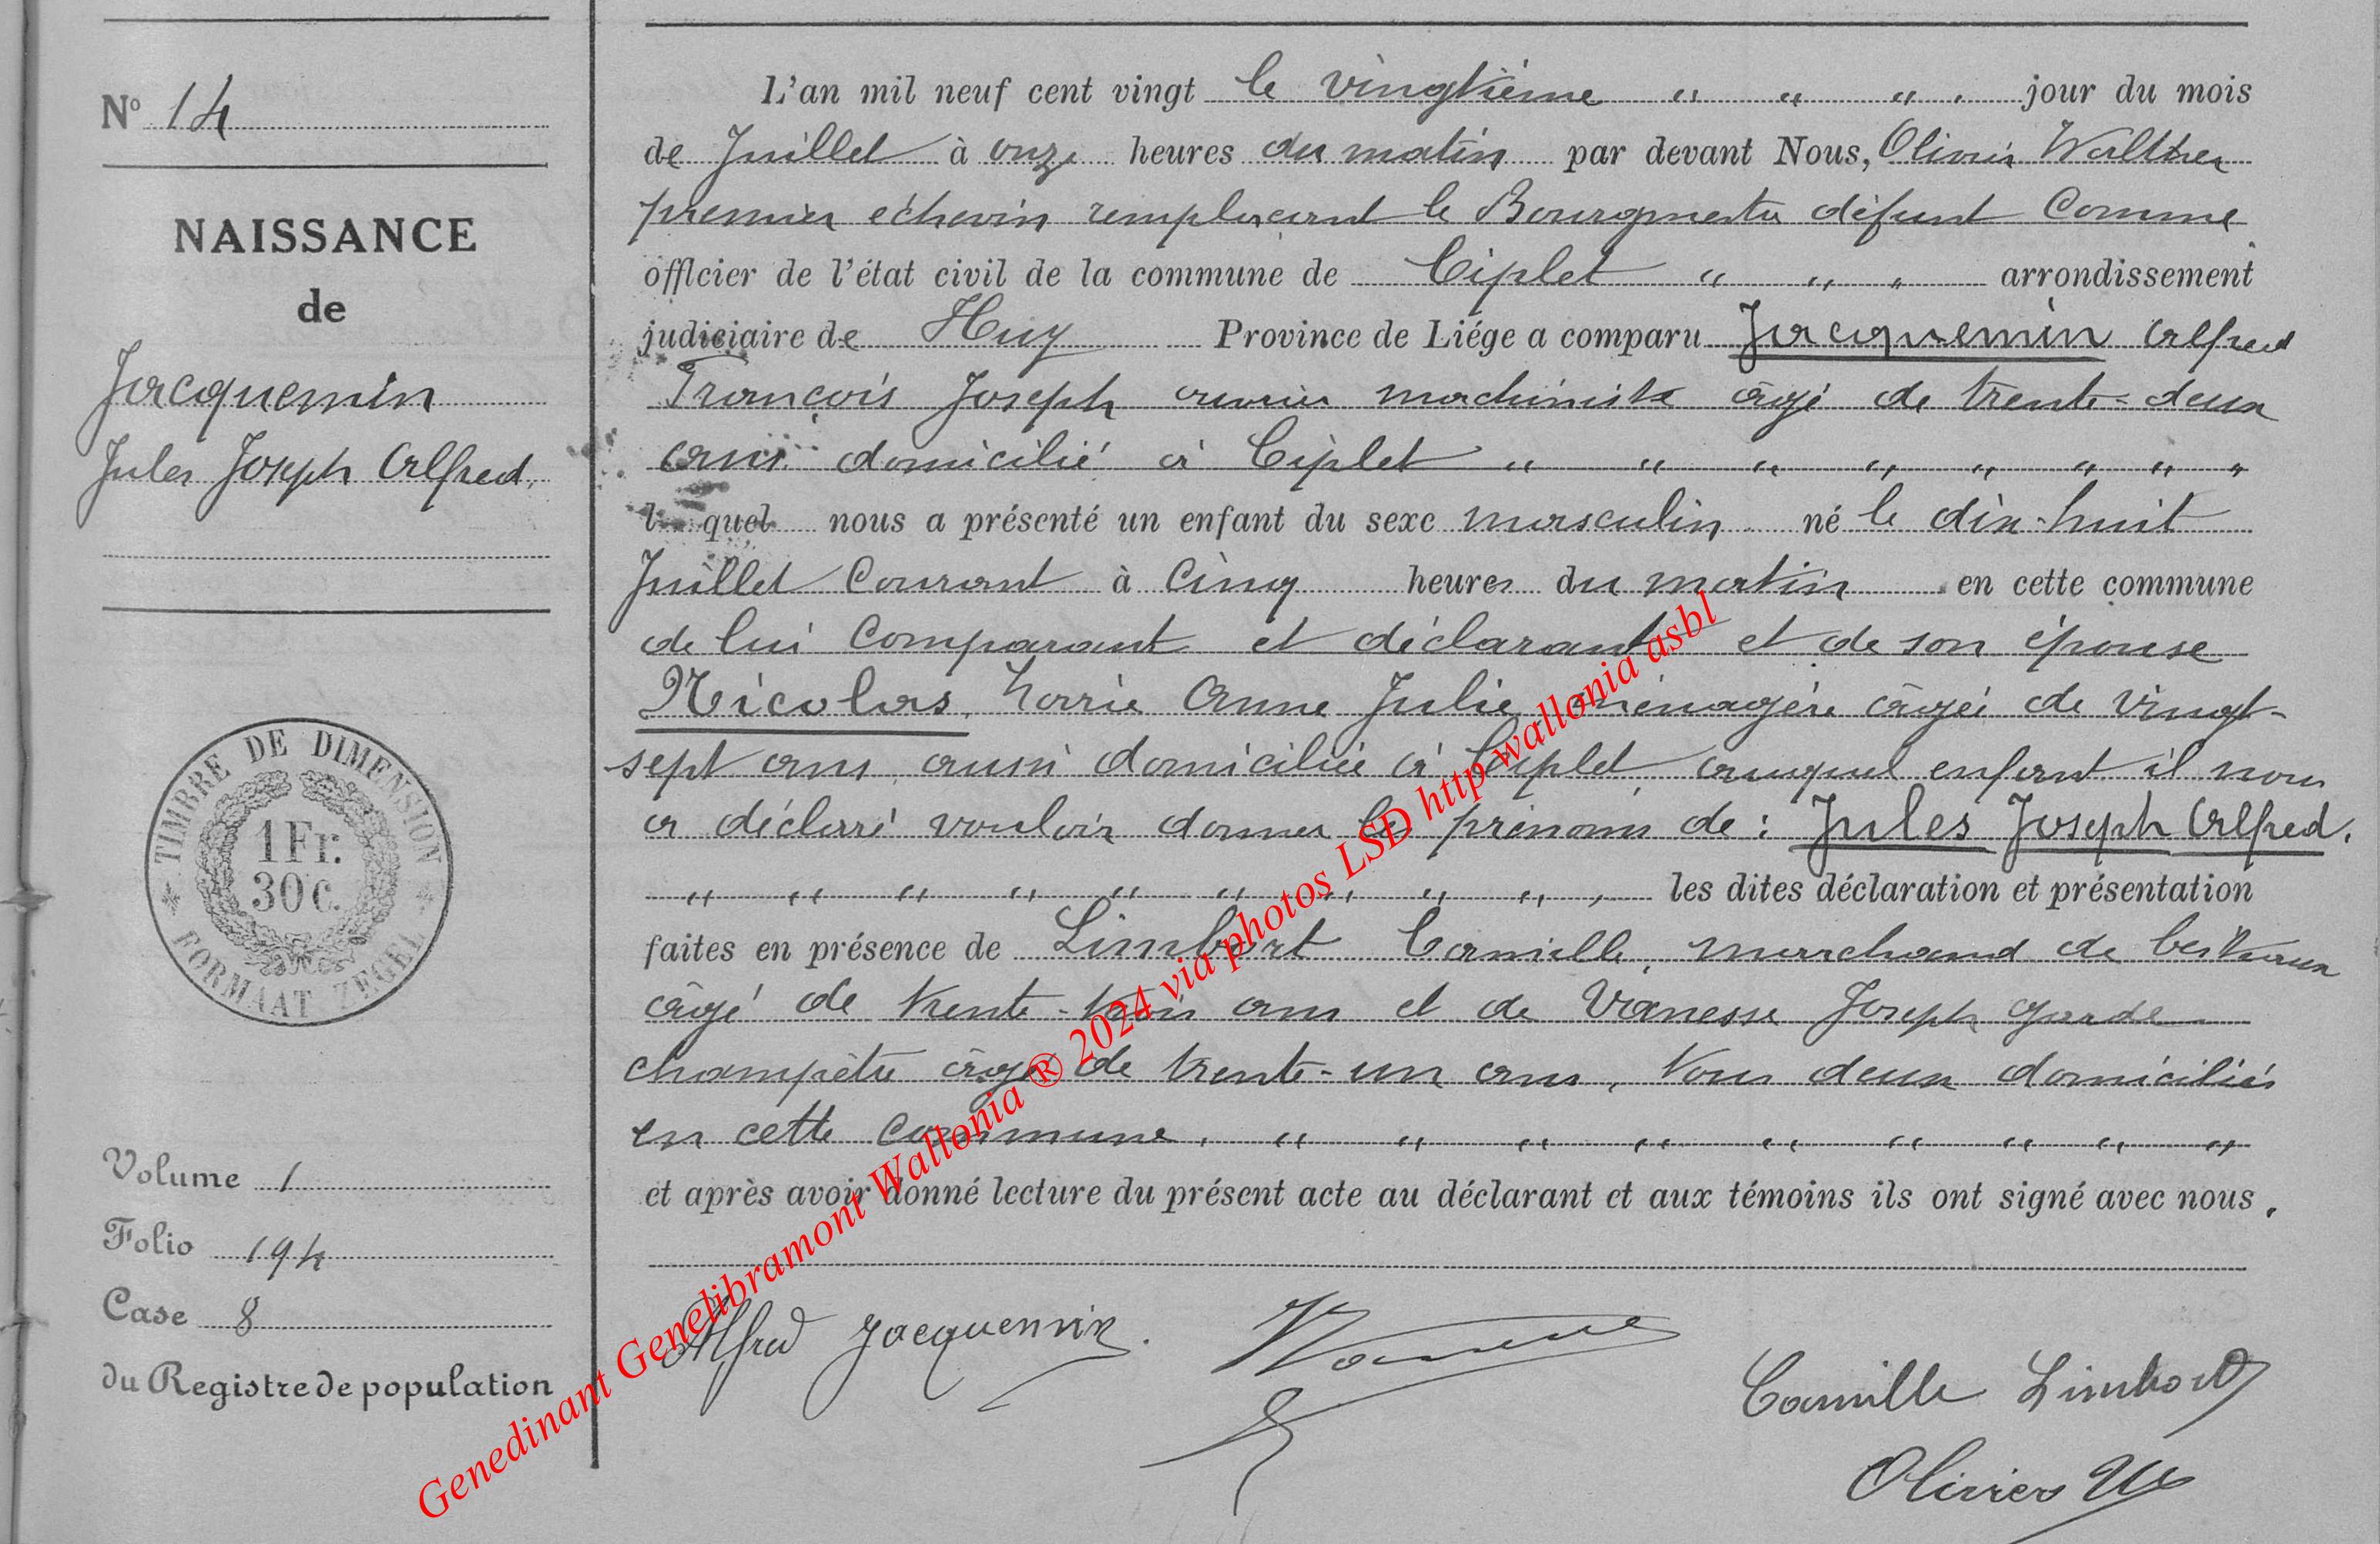 N° 14
NAISSANCE
de
Jacquemin
Jules Joseph Alfred.
TIMBRE DE DIMENSION
1 Fr.
30 c.
FORMAAT ZEGEL
Volume 1
Folio 194
Case 8
du Registre de population
L'an mil neuf cent vingt le vingtième " " " . jour du mois
de Juillet à onze heures du matin par devant Nous, Olivier Walther
premier échevin remplaçant le Bourgmestre défunt comme
officier de l'état civil de la commune de Ciplet " " " arrondissement
judiciaire de Huy Province de Liége a comparu Jacquemin Alfred
François Joseph ouvrier machiniste âgé de trente-deux
ans domicilié à Ciplet " " " " " " " "
lequel nous a présenté un enfant du sexe masculin né le dix-huit
Juillet Courant à cinq heures du matin en cette commune
de lui Comparant et déclarant et de son épouse
Nicolas, Marie Anne Julie, ménagère âgée de vingt-
sept ans, aussi domiciliée à Ciplet, auquel enfant il nous
a déclaré vouloir donner les prénoms de : Jules Joseph Alfred.
" " " " " " " " " , les dites déclaration et présentation
faites en présence de Limbort Camille, marchand de bestiaux
âgé de trente-trois ans et de Vanesse Joseph garde
champêtre âgé de trente-un ans, tous deux domiciliés
en cette commune. " " " " " " " " "
et après avoir donné lecture du présent acte au déclarant et aux témoins ils ont signé avec nous.
Alfred Jacquemin.
Camille Limbort
Olivier W
Genedinant Genelibramont Wallonia ® 2024 via photos LSD http wallonia asbl